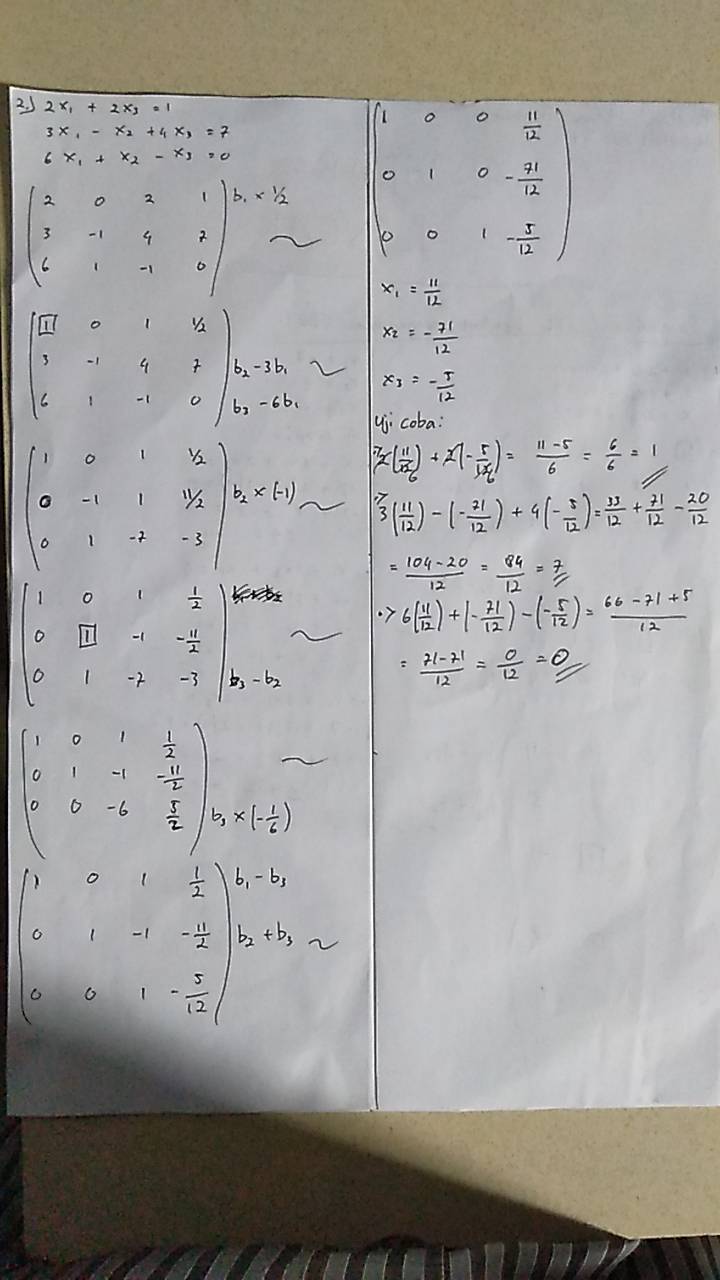 2.) 2x₁ + 2x₃ = 1
3x₁ - x₂ + 4x₃ = 7
6x₁ + x₂ - x₃ = 0
2 0 2 1 b₁ × 1/2
3 -1 4 7 ~
6 1 -1 0
1 0 1 1/2
3 -1 4 7 b₂ - 3b₁ ~
6 1 -1 0 b₃ - 6b₁
1 0 1 1/2
0 -1 1 11/2 b₂ × (-1) ~
0 1 -7 -3
1 0 1 1/2
0 1 -1 -11/2 ~
0 1 -7 -3 b₃ - b₂
1 0 1 1/2 ~
0 1 -1 -11/2
0 0 -6 5/2 b₃ × (-1/6)
1 0 1 1/2 b₁ - b₃
0 1 -1 -11/2 b₂ + b₃ ~
0 0 1 -5/12
1 0 0 11/12
0 1 0 -71/12
0 0 1 -5/12
x₁ = 11/12
x₂ = -71/12
x₃ = -5/12
Uji coba:
•> 2(11/12) + 2(-5/12) = (11-5)/6 = 6/6 = 1
•> 3(11/12) - (-71/12) + 4(-5/12) = 33/12 + 71/12 - 20/12
= (104-20)/12 = 84/12 = 7
•> 6(11/12) + (-71/12) - (-5/12) = (66-71+5)/12
= (71-71)/12 = 0/12 = 0